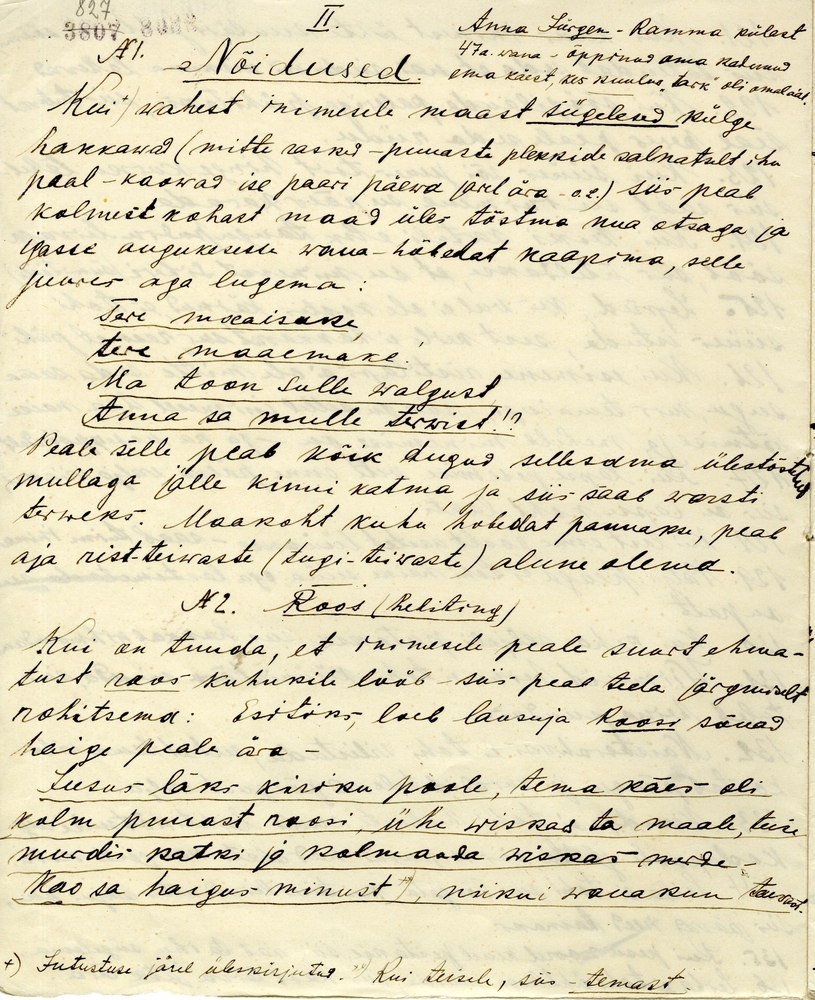 827
3807
II.
Anna Jürgen - Ramma külast
47a. wana - õppinud oma kadunud
ema käest, kes kuulus "tark" oli omal aal.
№1.
Nõidused.
Kui +) wahest inimesele maast sügelend külge
hakkawad (mitte rasked - punaste plekkide salnatselt ihu
paal - kaowad ise paari päewa järel ära - o.) siis peab
kolmest kohast maad üles tõstma nua otsaga ja
igasse augukesesse wana-hõbedat kaapima, selle
juures aga lugema:
Tere maaisake,
tere maaemake!
Ma toon sulle walgust,
Anna sa mulle terwist!"
Peale selle peab kõik augud sellesama ülestõstetud
mullaga jälle kinni katma, ja siis saab warsti
terweks. Maakoht kuhu hobedat pannakse, peab
aja rist-teiwaste (tugi-teiwaste) alune olema.
№2. Roos (helitino)
Kui on tunda, et inimesele peale suurt ehma-
tust roos kuhukile lööb - siis peab teda järgmiselt
rohitsema: Esiteks, loeb lausuja Roosi sõnad
haige peale ära -
Jeesus läks kiriku poole, tema käes oli
kolm punast roosi, ühe wiskas ta maale, teise
murdis katki ja kolmanda wiskas merde -
Kao sa haigus minust, niikui wanakuu taewast.
+) Jutustuse järel üleskirjutud. Kui teisele, siis - temast.